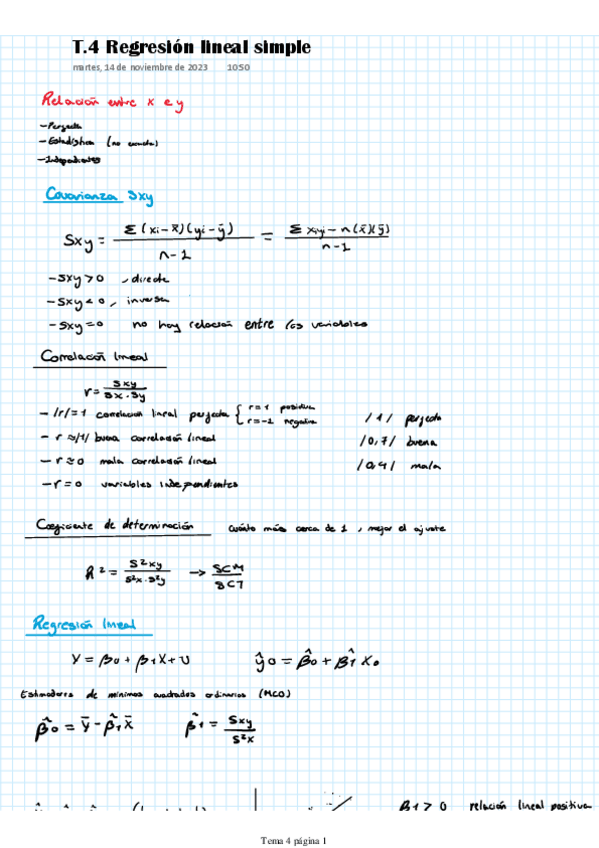 T.4 Regresión lineal simple
martes, 14 de noviembre de 2023 10:50
Relación entre x e y
- Perfecta
- Estadística (no exacta)
- Independientes
Covarianza Sxy
Sxy = Σ(xi - x̄)(yi - ȳ) / n-1 = Σ xiyi - n(x̄)(ȳ) / n-1
- Sxy > 0 , directa
- Sxy < 0 , inversa
- Sxy = 0 no hay relación entre las variables
Correlación lineal
r = Sxy / Sx · Sy
- |r| = 1 correlacion lineal perfecta { r = 1 positiva r = -1 negativa /1/ perfecta
- r ≈ /1/ buena correlación lineal /0,7/ buena
- r ≈ 0 mala correlación lineal /0,4/ mala
- r = 0 variables independientes
Coeficiente de determinación cuánto más cerca de 1 , mejor el ajuste
R² = S²xy / S²x · S²y → SCM / SCT
Regresión lineal
Y = β0 + β1X + U ŷ0 = β̂0 + β̂1 X0
Estimadores de mínimos cuadrados ordinarios (MCO)
β̂0 = ȳ - β̂1 x̄ β̂1 = Sxy / S²x
β1 > 0 relación lineal positiva
Tema 4 página 1